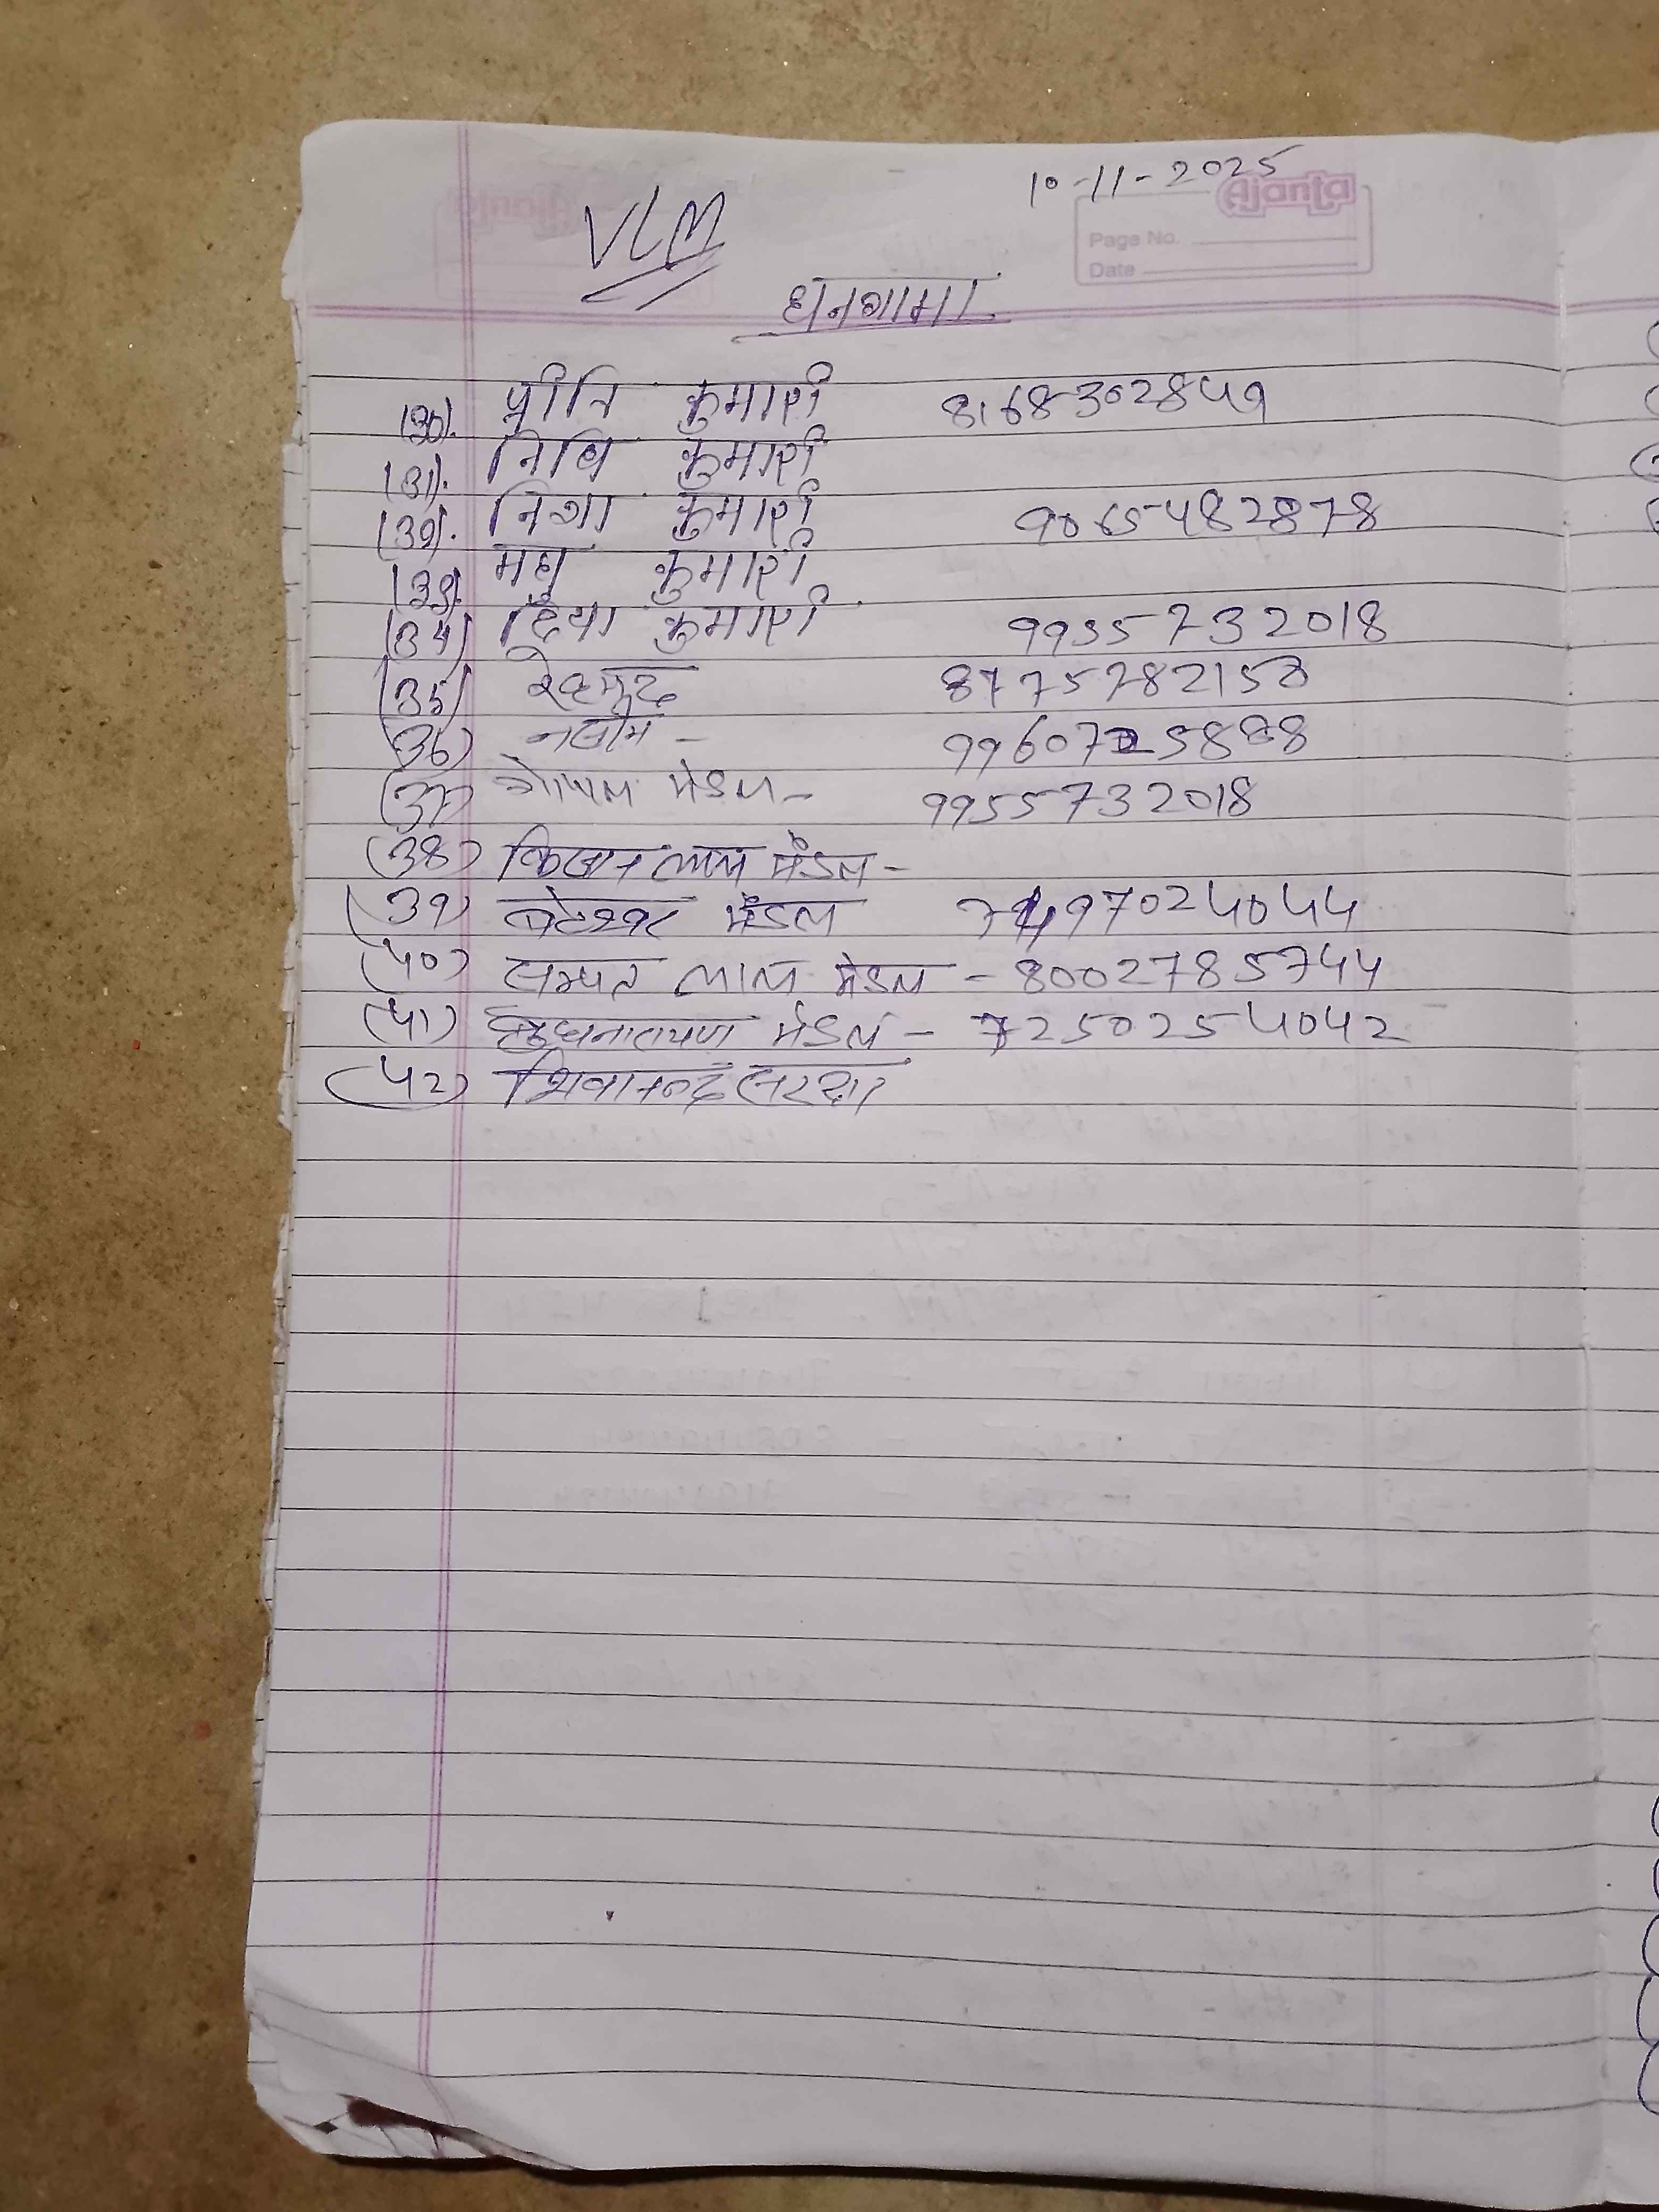 10-11-2025
Ajanta
Page No.
Date
VLM
धनगामा
(30). प्रीति कुमारी 8168302849
(31). निधि कुमारी
(32). निशा कुमारी 9065482878
(33). मधु कुमारी
(34) दिया कुमारी 9955732018
(35)
(36) 9960725888
(37) गोपाल मंडल - 9955732018
(38) किशन लाल मंडल -
(39) बटेश्वर मंडल 7497024044
(40) सम्पत लाल मंडल - 8002785744
(41) बुधनारायण मंडल - 7250254042
(42) शिवानन्द सरदार